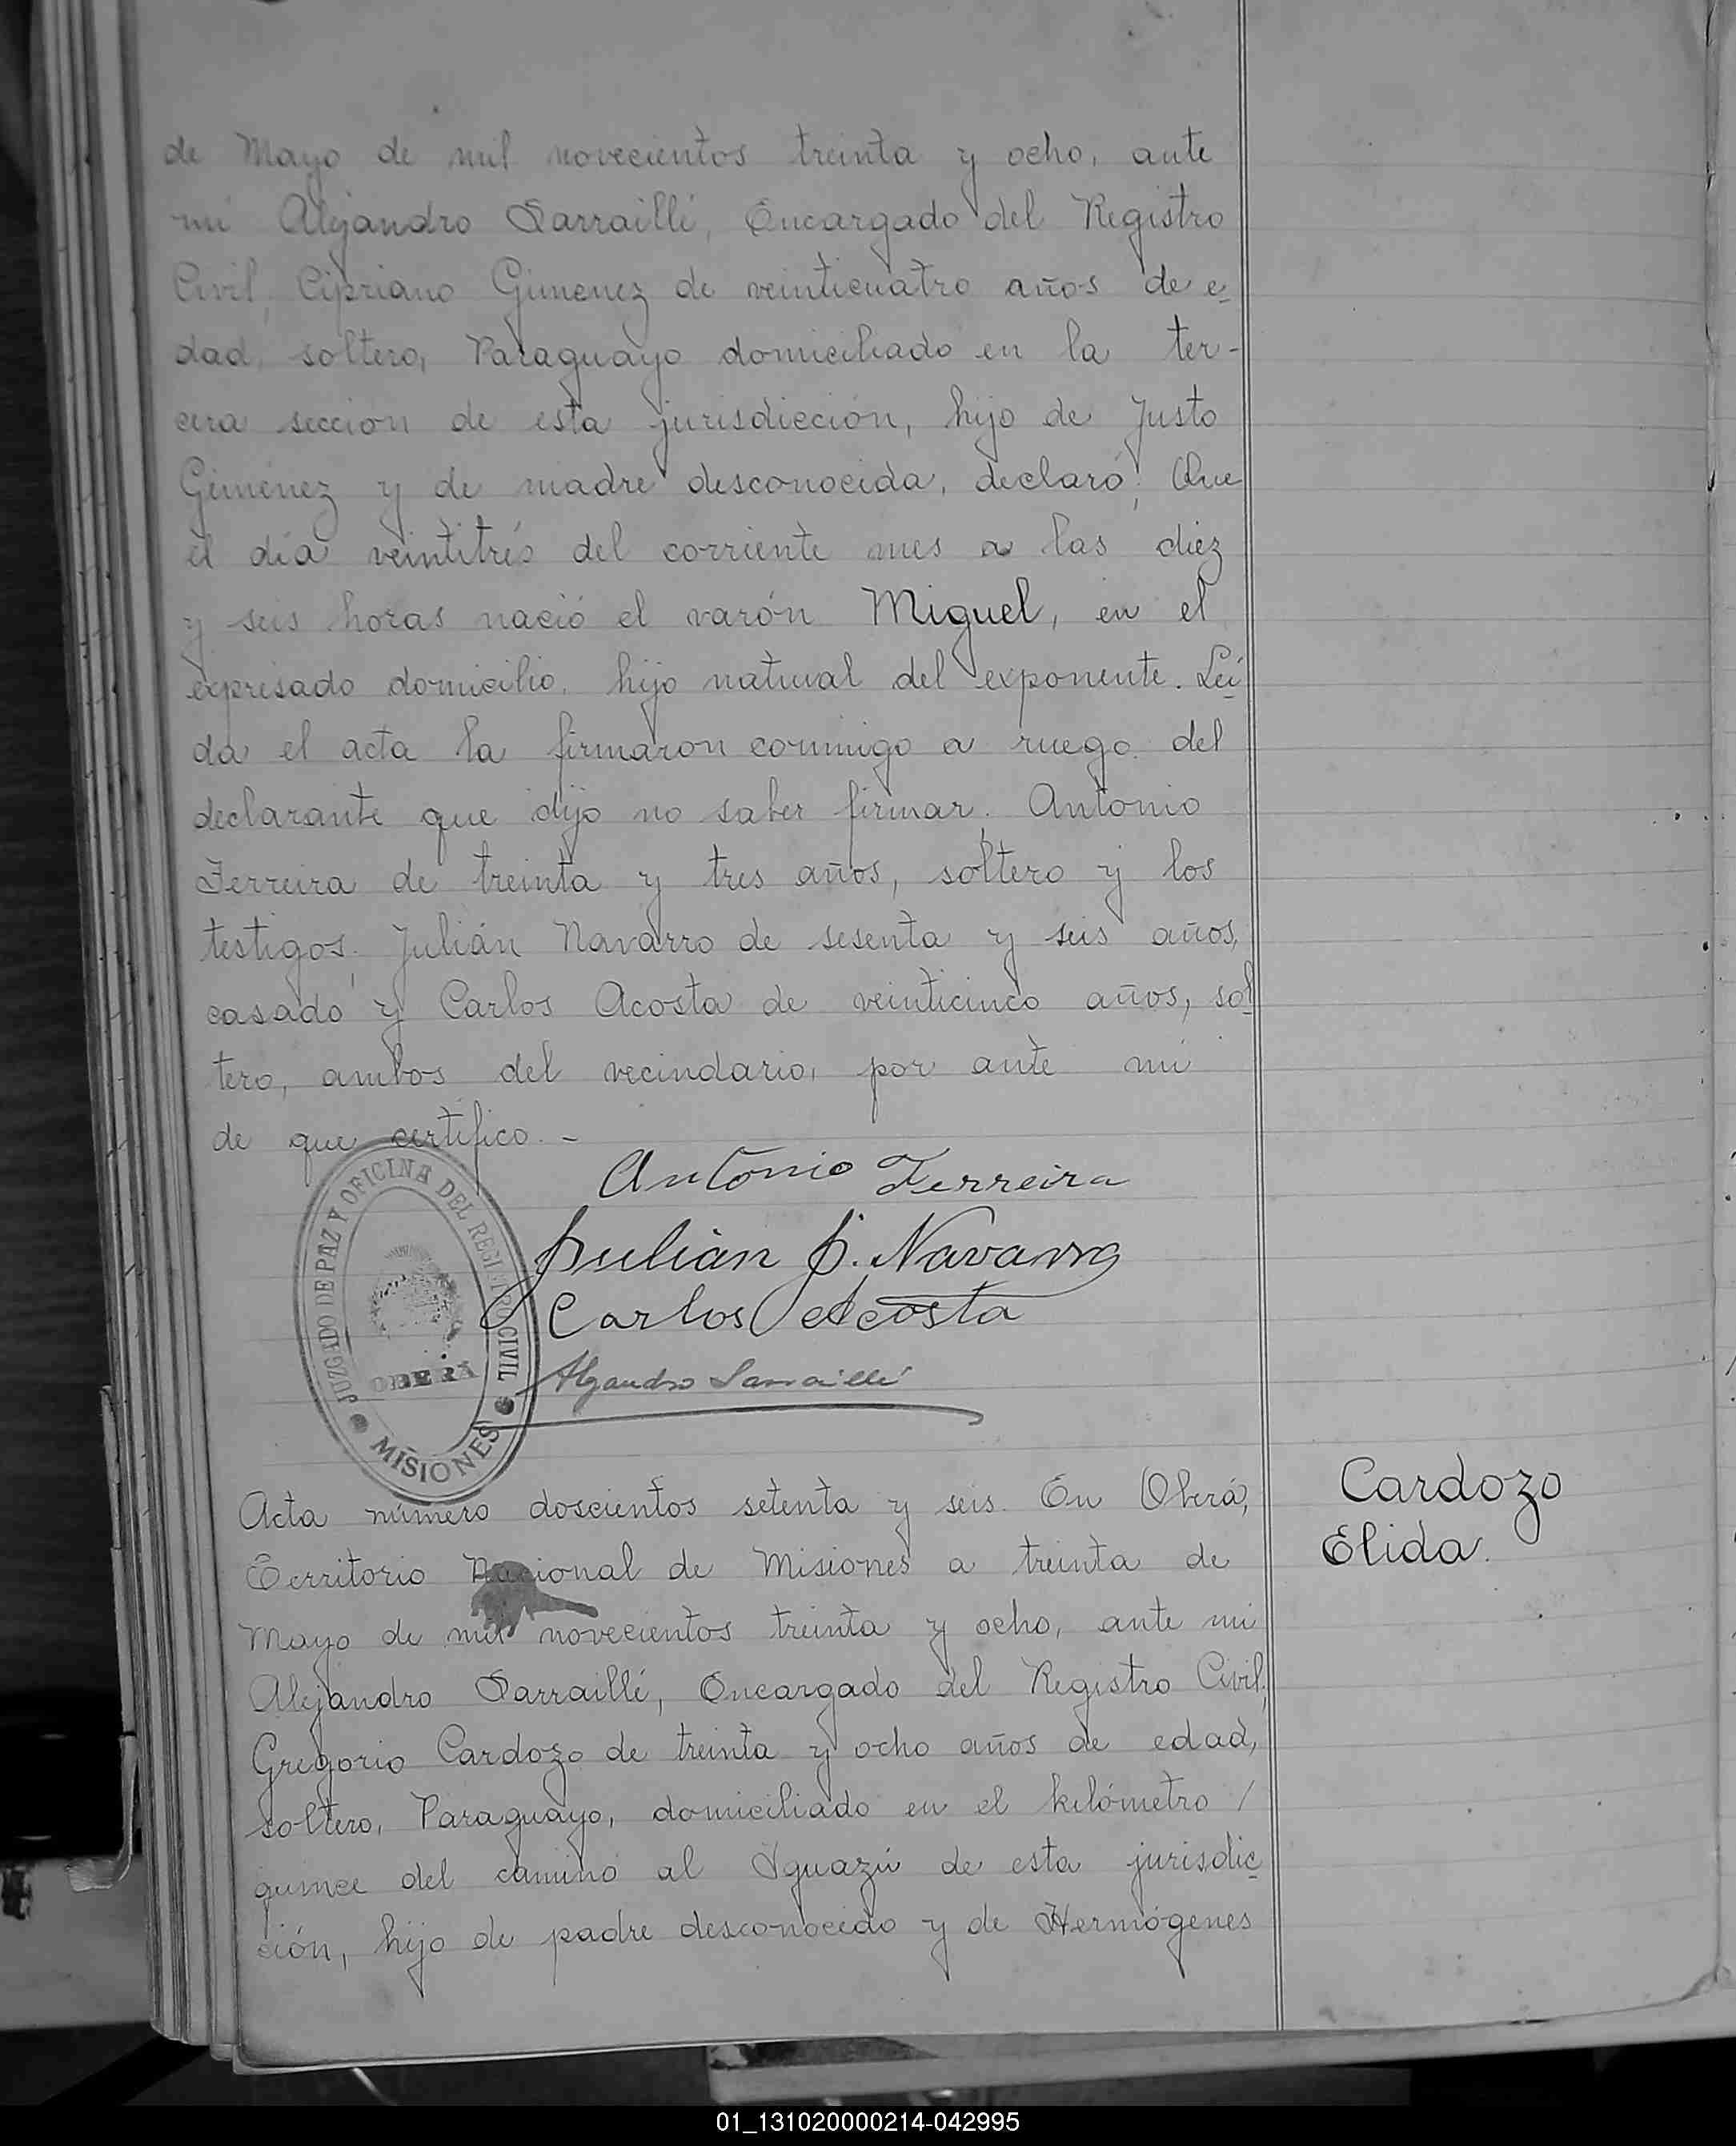 de Mayo de mil novecientos treinta y ocho, ante
mi Alejandro Sarraillé, Encargado del Registro
Civil, Cipriano Gimenez de veinticuatro años de e-
dad, soltero, Paraguayo domiciliado en la ter-
cera sección de esta jurisdicción, hijo de Justo
Gimenez y de madre desconocida, declaró; Que
el día veintitrés del corriente mes a las diez
y seis horas nació el varón Miguel, en el
expresado domicilio, hijo natural del exponente. Leí-
da el acta la firmaron conmigo a ruego del
declarante que dijo no saber firmar, Antonio
Ferreira de treinta y tres años, soltero y los
testigos, Julián Navarro de sesenta y seis años,
casado y Carlos Acosta de veinticinco años, sol-
tero, ambos del vecindario, por ante mi
de que certifico. -
Antonio Ferreira
Julián J. Navarro
Carlos Acosta
Alejandro Sarraillé
JUZGADO DE PAZ Y OFICINA DEL REGISTRO CIVIL
OBERÁ
MISIONES
Acta número doscientos setenta y seis. En Oberá,
Territorio Nacional de Misiones a treinta de
Mayo de mil novecientos treinta y ocho, ante mi
Alejandro Sarraillé, Encargado del Registro Civil,
Gregorio Cardozo de treinta y ocho años de edad,
soltero, Paraguayo, domiciliado en el kilómetro /
quince del camino al Iguazú de esta jurisdic-
ción, hijo de padre desconocido y de Hermógenes
Cardozo
Elida.
01_131020000214-042995